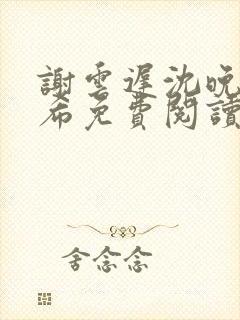 謝雲遲沈晚
希免費閱讀
舍念念